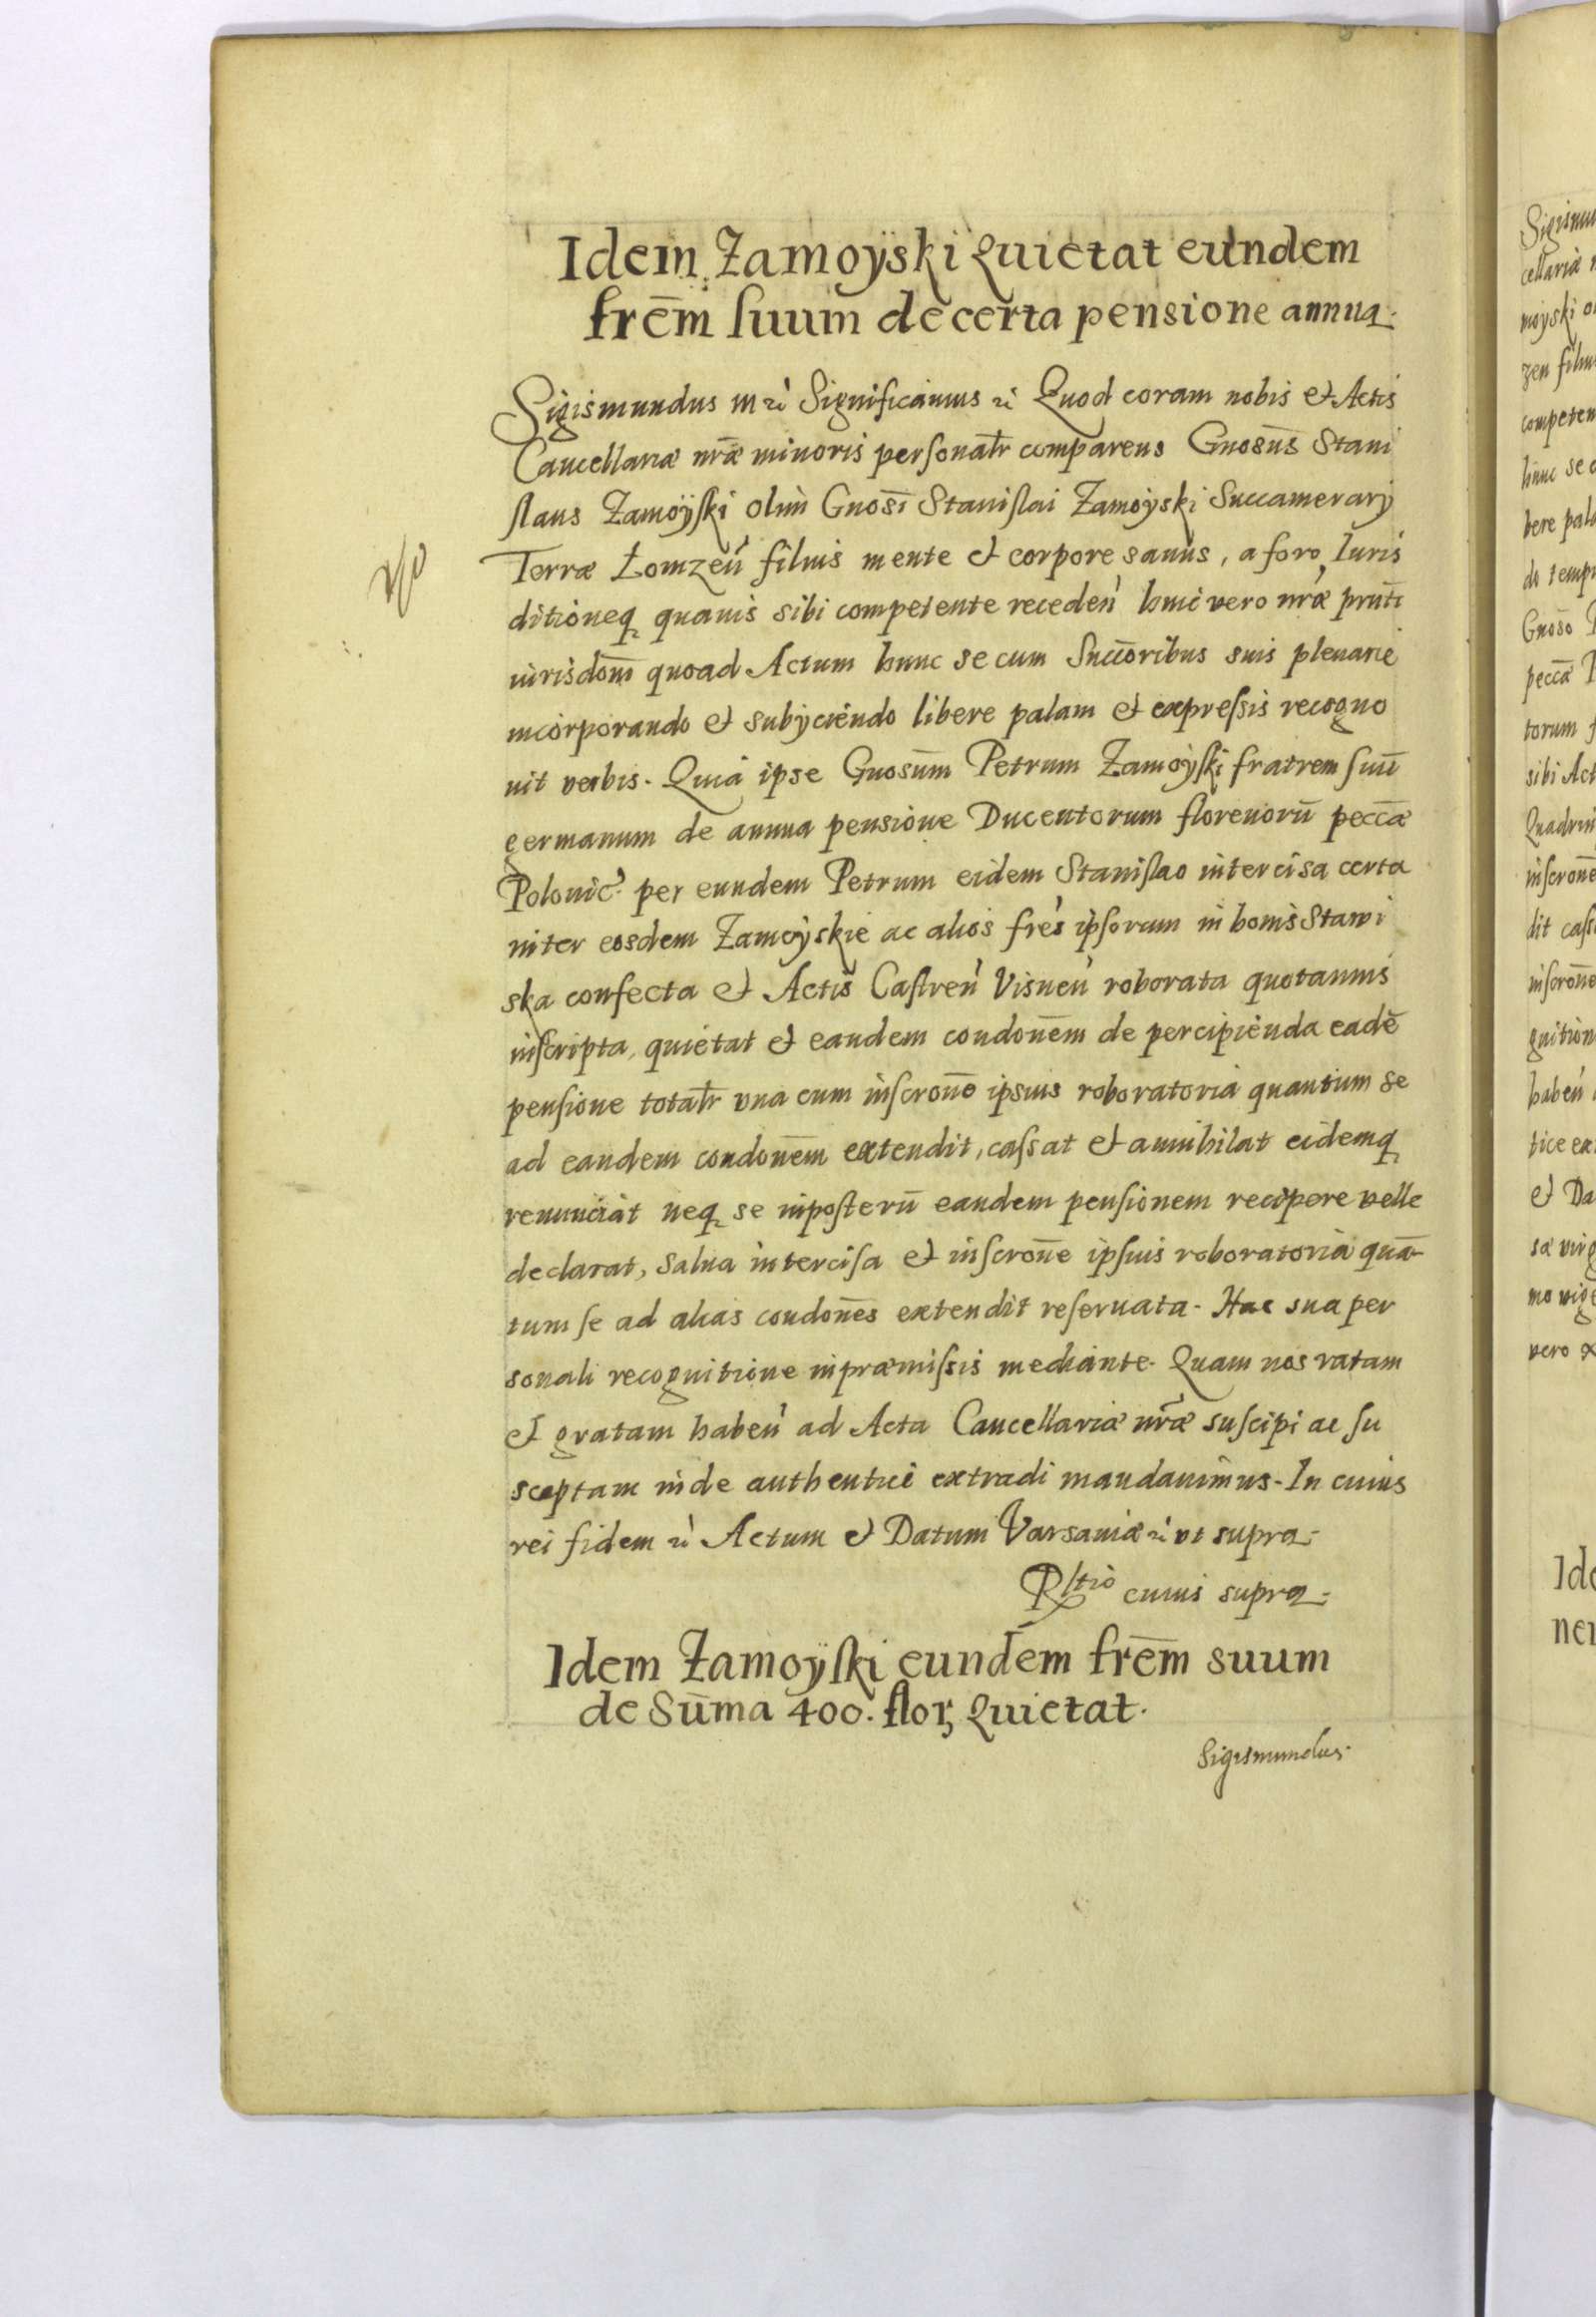 Idem Zamoÿski Quietat eundem
frēm suum de certa pensione annua.
Sigismundus III etc Significamus etc Quod coram nobis et Actis
Cancellariæ nr̄æ minoris personalr̄ comparens Gnosūs Stani
slaus Zamoÿski olim Gnosī Stanislai Zamoÿski Succamerarij
Terræ Łomzen̄ filius mente et corpore sanus, a foro Iuris
ditioneq; quauis sibi competente receden̄ huic vero nr̄æ prn̄ti
iurisdom̄ quoad Actum hunc se cum Succ̄oribus suis plenarie
incorporando et subijciendo libere palam et expressis recogno
uit verbis. Quia ipse Gnosūm Petrum Zamoÿski fratrem suū
germanum de annua pensione Ducentorum florenorū pecc̄æ
Polonic̄. per eundem Petrum eidem Stanislao intercisa certa
inter eosdem Zamoÿskie ac alios frēs ipsorum in bonis Stawi
ska confecta et Actis Castren̄ Visnen̄ roborata quotannis
inscripta, quietat et eandem condon̄em de percipienda eadē
pensione totalr̄ vna cum inscron̄e ipsius roboratoria quantum se
ad eandem condon̄em extendit, cassat et annihilat eidemq;
renunciat neq; se inposterū eandem pensionem recipere velle
declarat, salua intercisa et inscron̄e ipsius roboratoria quā-
tum se ad alias condon̄es extendit reseruata. Hac sua per
sonali recognitione in præmissis mediante. Quam nos ratam
et gratam haben̄ ad Acta Cancellariæ nr̄æ suscipi ac su
sceptam inde authentice extradi mandauimus. In cuius
rei fidem etc Actum et Datum Varsauiæ etc vt supra.
Rltio cuius supra.
Idem Zamoÿski eundem frēm suum
de Sūma 400. flor. Quietat.
Sigismundus.